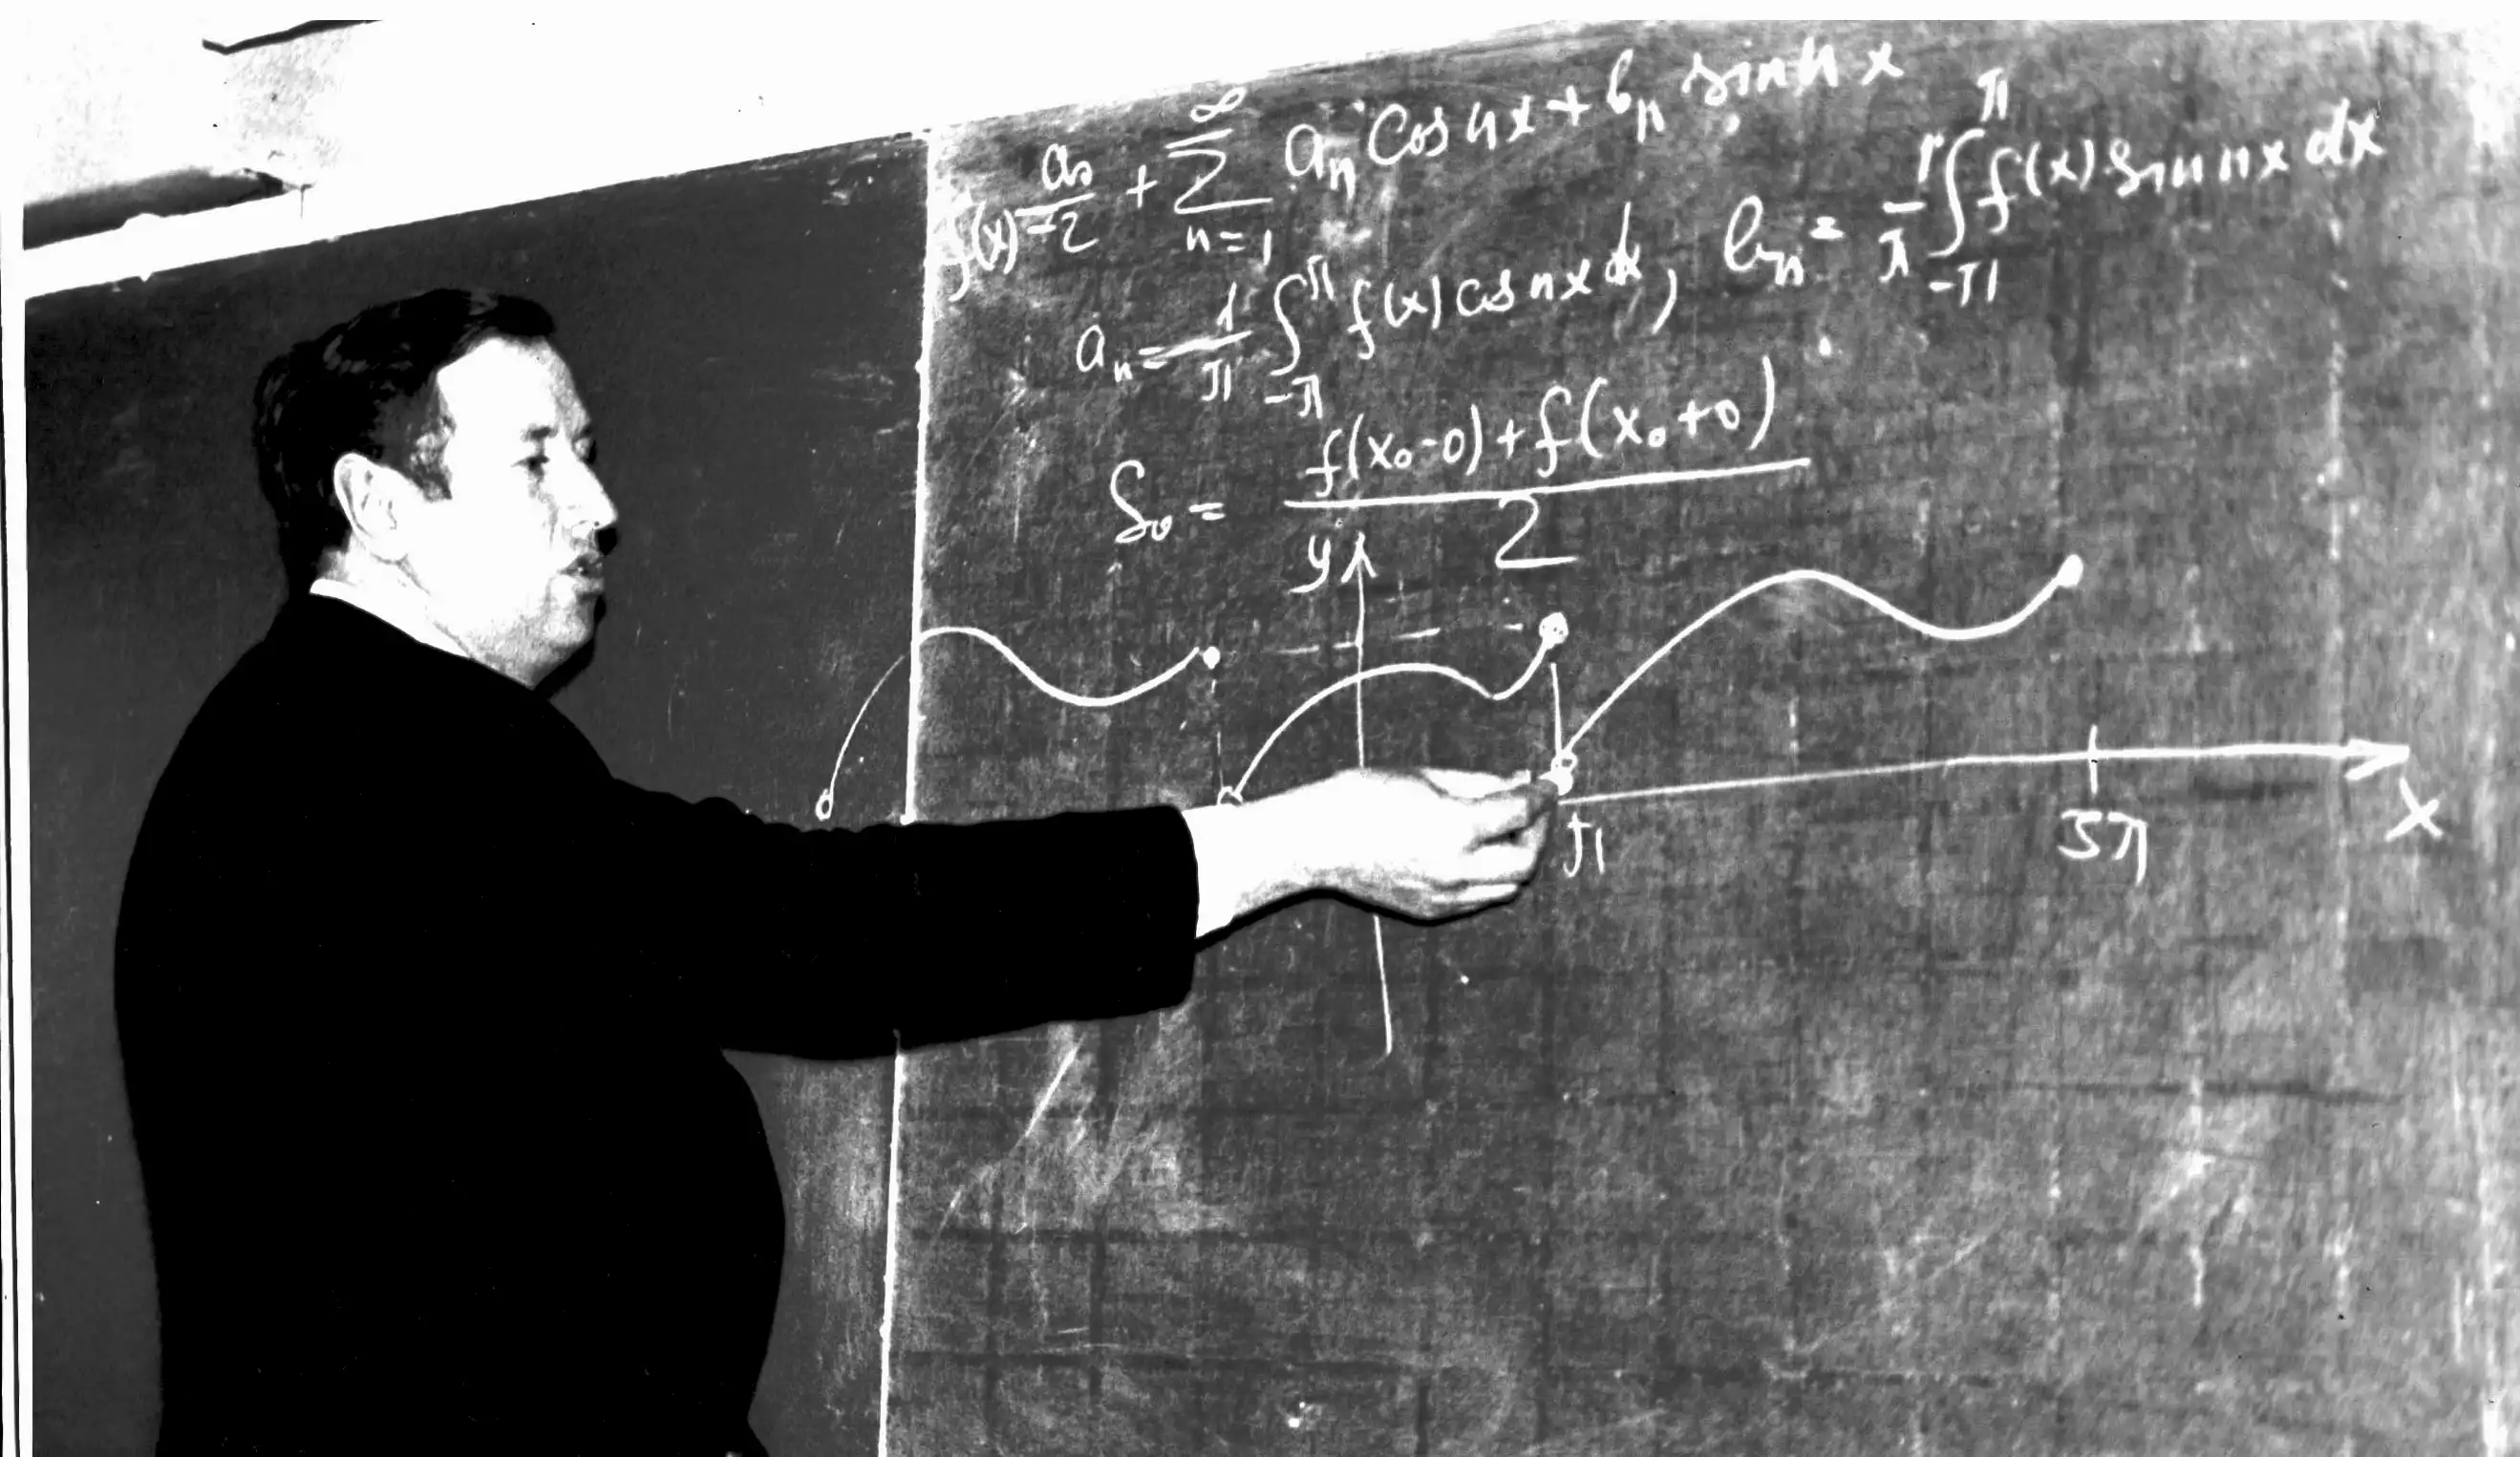 f(x) = a₀/2 + ∑_{n=1}^{∞} aₙ cos nx + bₙ sin nx
aₙ = 1/π ∫_{-π}^{π} f(x) cos nx dx, bₙ = 1/π ∫_{-π}^{π} f(x) sin nx dx
S₀ = (f(x₀-0) + f(x₀+0))/2
y
π 3π x